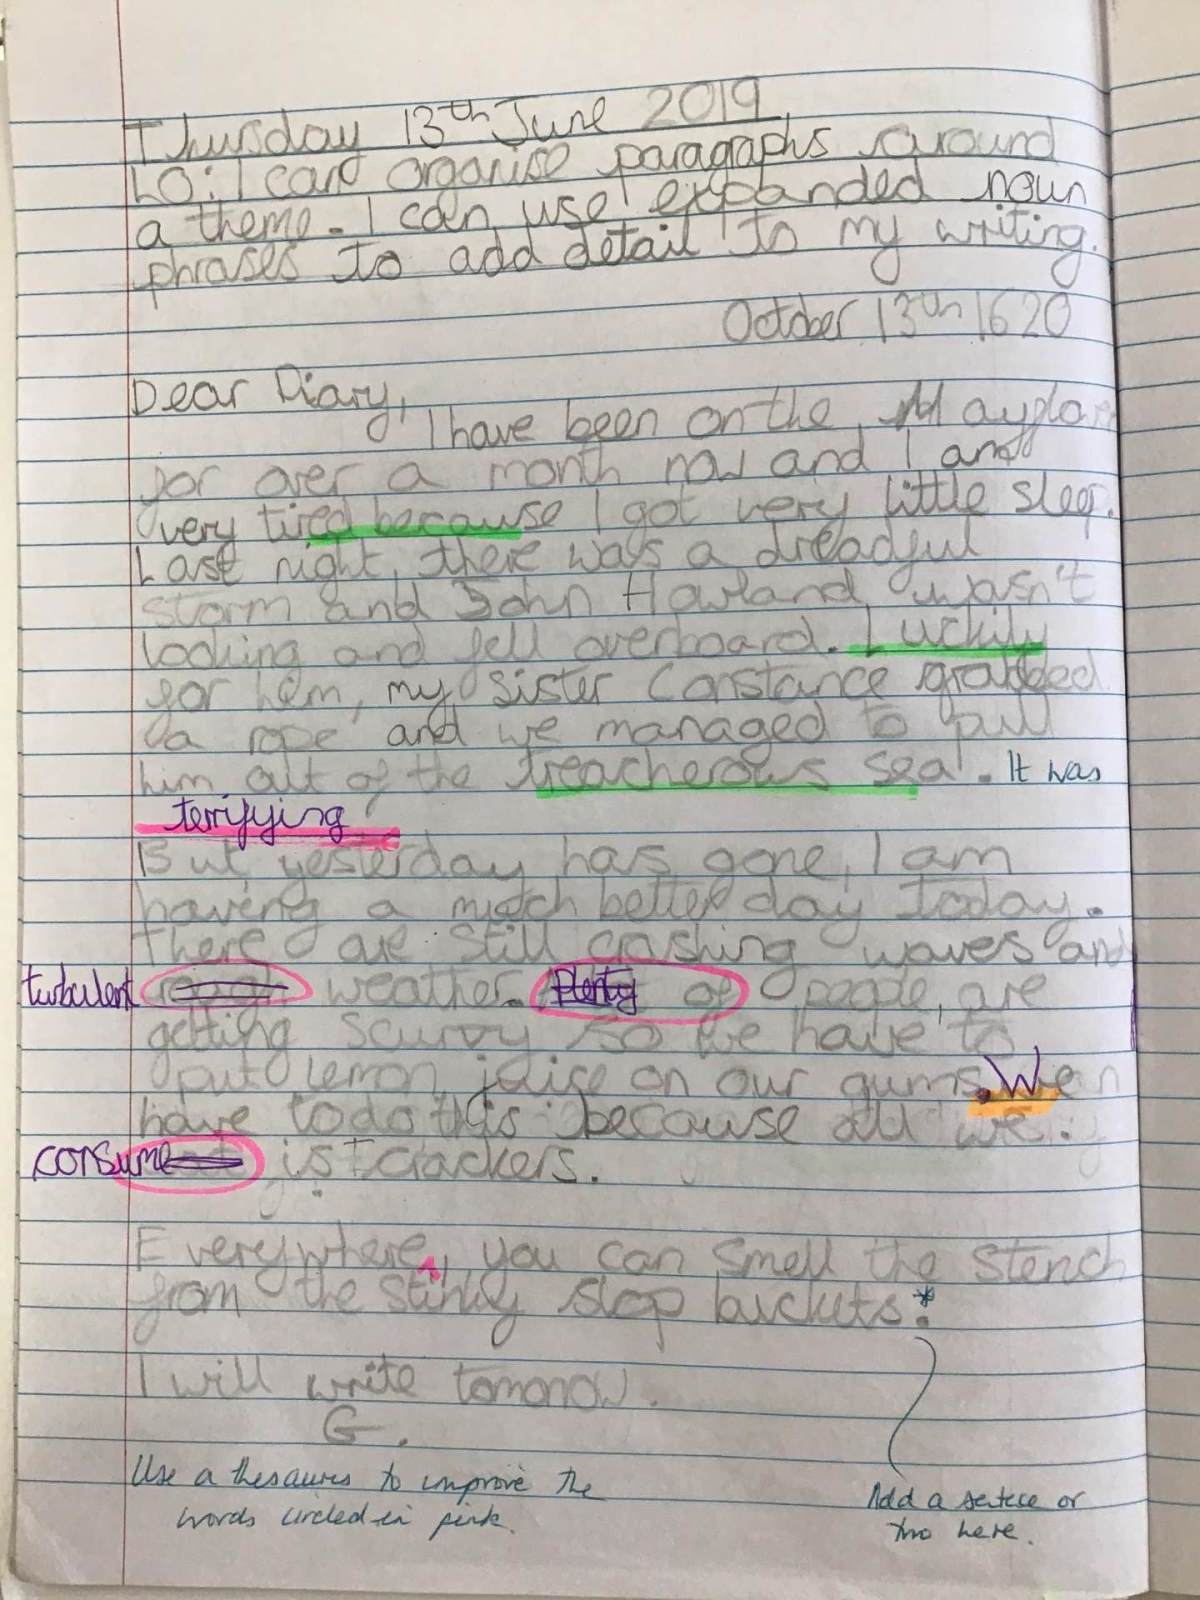 Thursday 13th June 2019
LO: I can organise paragraphs around
a theme. I can use expanded noun
phrases to add detail to my writing.
October 13th 1620
Dear Diary,
I have been on the
for over a month now and I am
very tired because I got very little sleep.
Last night, there was a dreadful
storm and John Howland wasn't
looking and fell overboard. Luckily
for him, my sister Constance grabbed
a rope and we managed to pull
him out of the treacherous sea. It was
terrifying
But yesterday has gone, I am
having a much better day today.
There are still crashing waves and
turbulent weather. Plenty of people are
getting scurvy so we have to
put lemon juice on our gums. We
have to do this because all we
consume is crackers.
Everywhere, you can smell the stench
from the stinky slop buckets.*
I will write tomorrow.
G.
Use a thesaures to improve the
words circled in pink.
Add a sentece or
two here.